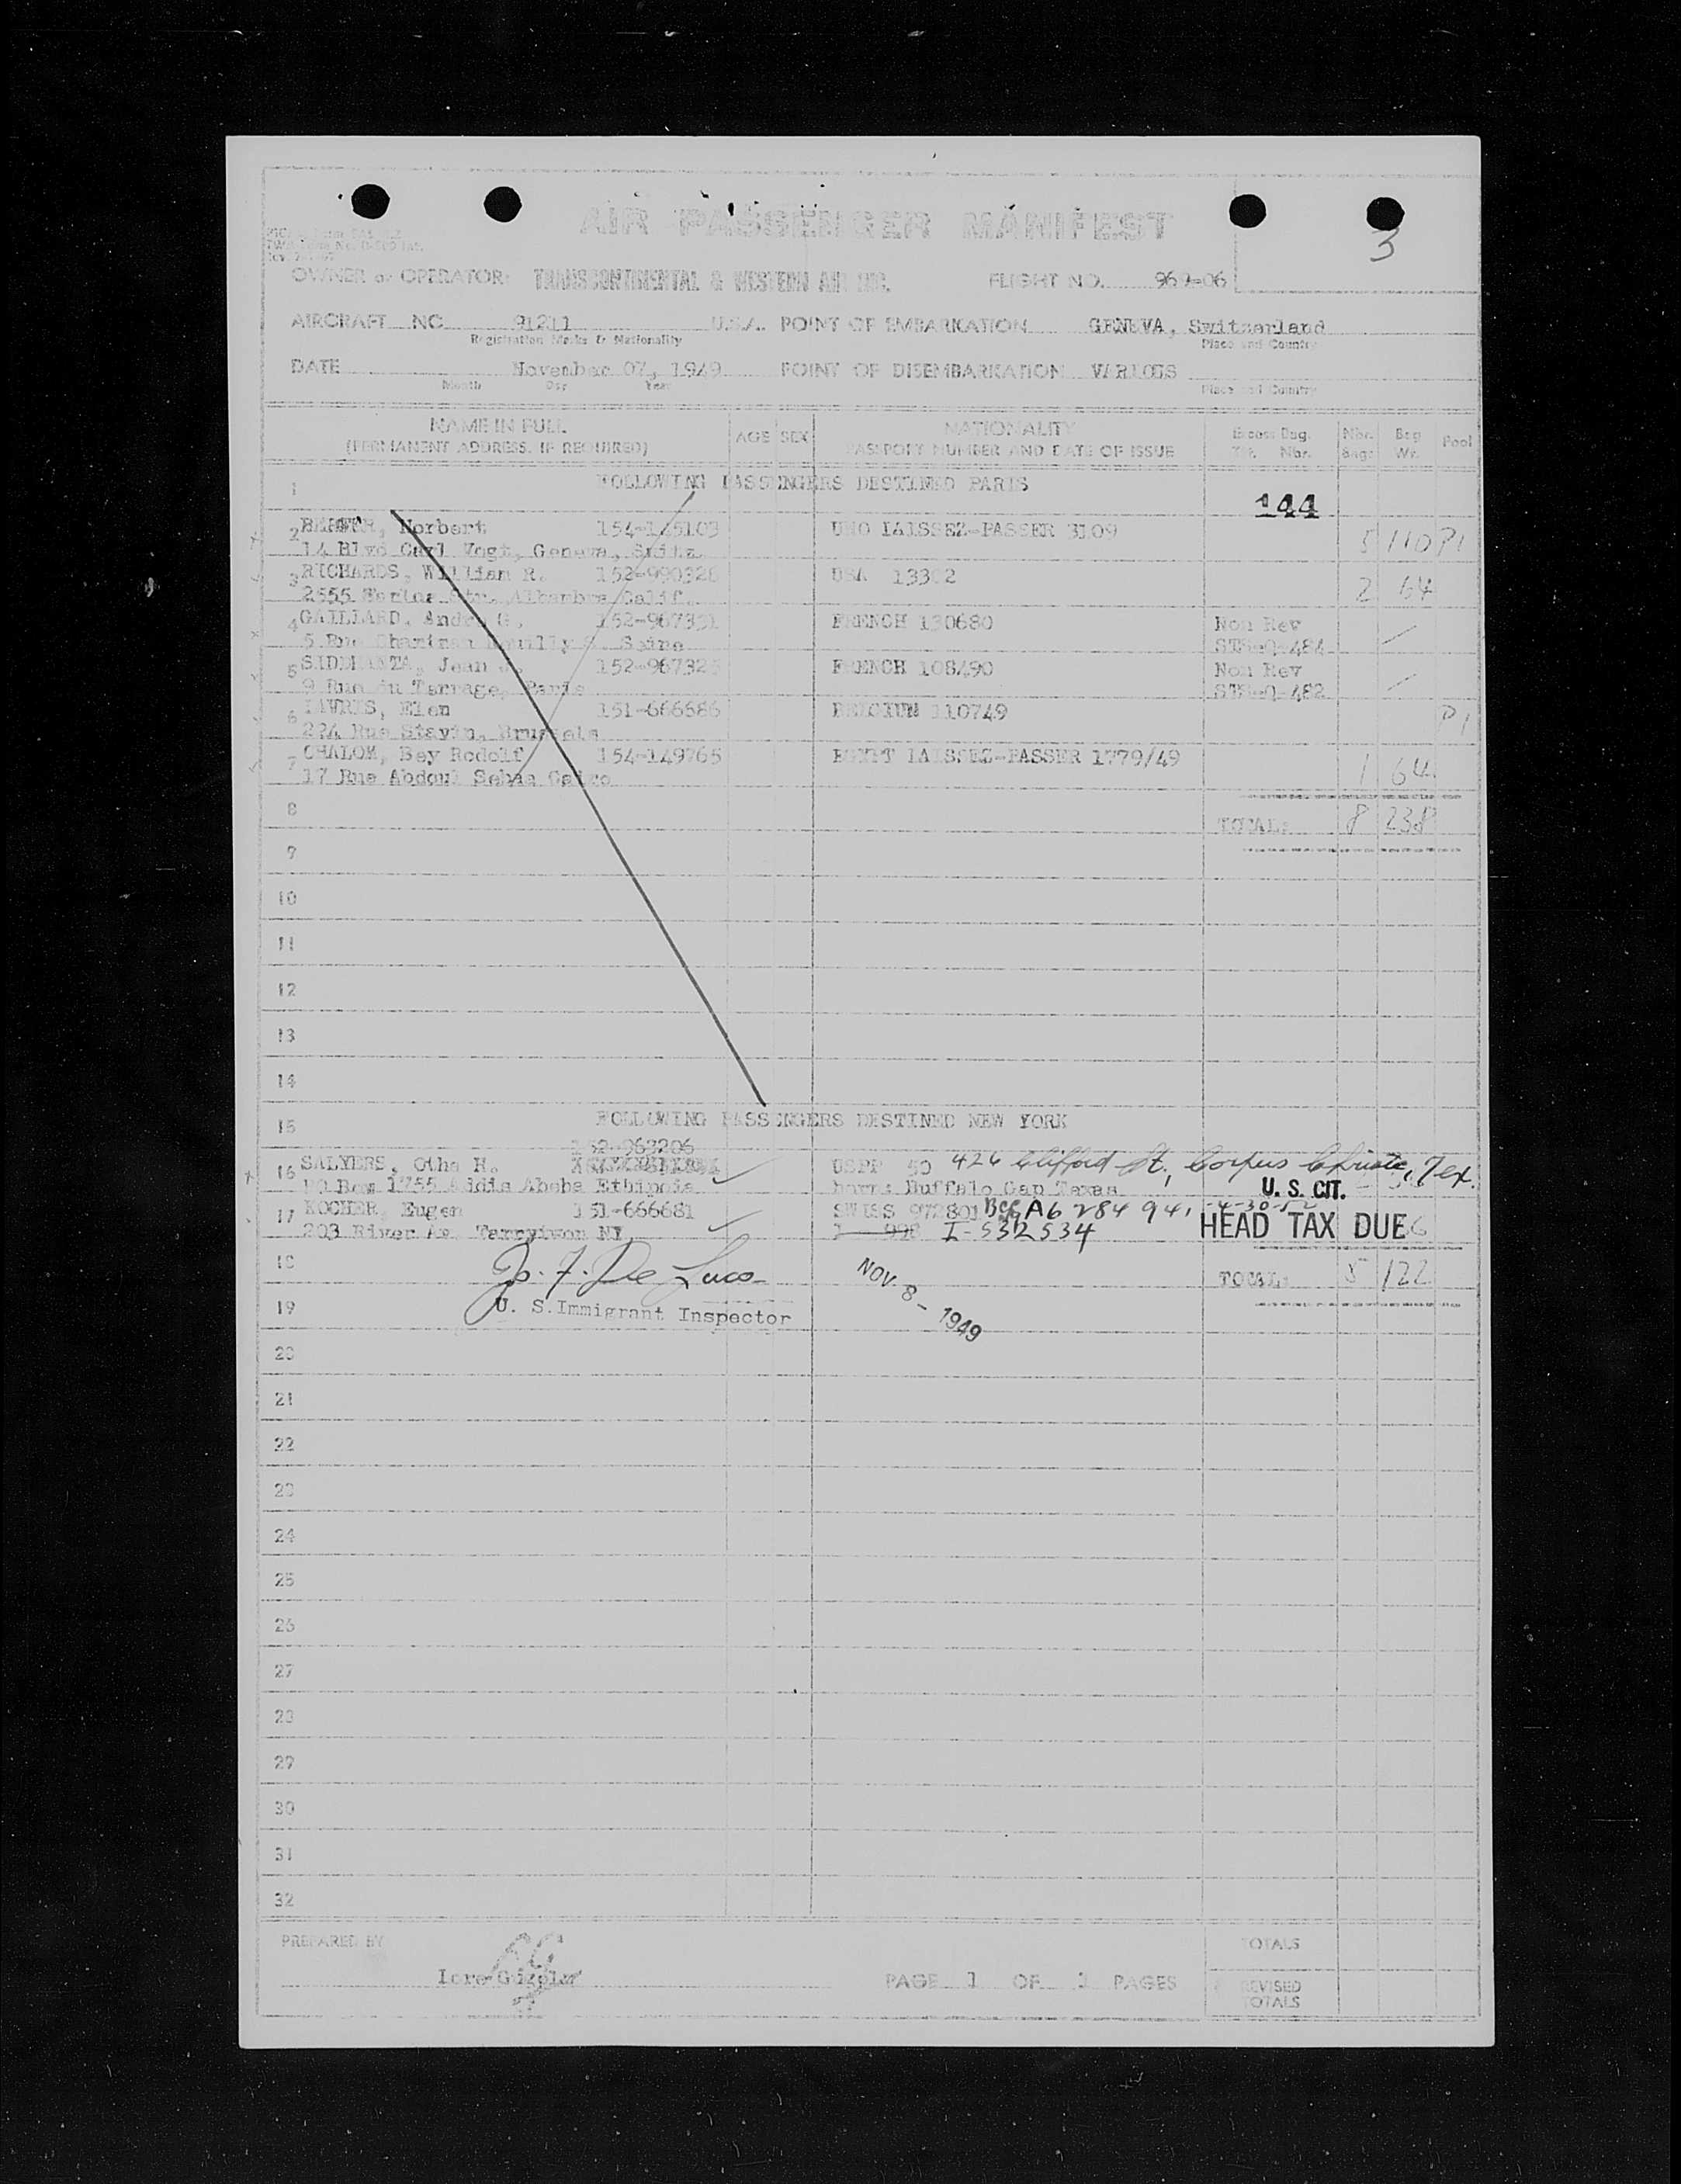 AIR PASSENGER MANIFEST
3
OWNER or OPERATOR: TRANSCONTINENTAL & WESTERN AIR INC. FLIGHT NO. 969-06
AIRCRAFT NC 91211 U.S.A. POINT OF EMBARKATION GENEVA, Switzerland
Registration Marks & Nationality Place and Country
DATE November 07, 1949 POINT OF DISEMBARKATION VARIOUS
Month Day Year Place and Country
NAME IN FULL NATIONALITY Excess Bag. Nbr. Bag Pool
(PERMANENT ADDRESS, IF REQUIRED) AGE SEX PASSPORT NUMBER AND DATE OF ISSUE Nbr. Bags Wt.
1 FOLLOWING PASSENGERS DESTINED PARIS
144
2 Norbert 154-125103 UNO LAISSEZ-PASSER 3109 5 110 P1
14 Blvd Carl Vogt, Geneva, Switz.
3 RICHARDS, William R. 152-990328 USA 13302 2 64
Alhambra Calif.
4 GAILLARD, Andre G. 152-967331 FRENCH 130680 Non Rev
5 Rue Seine STS-Q-484
5 Jean J. 152-96732 FRENCH 108490 Non Rev
9 Rue du Terrage, Paris STS-Q-482
6 Elen 151-666686 BELGIUM 110749 P1
224 Rue Brussels
7 CHALOM, Bey Rodolf 154-149765 EGYPT LAISSEZ-PASSER 1779/49 1 64
17 Rue Abdoul Cairo
8 TOTAL: 8 238
9
10
11
12
13
14
15 FOLLOWING PASSENGERS DESTINED NEW YORK
152-963206
16 SALYERS, Otha H. USPP 50 426 Clifford St, Corpus Christi, Tex.
PO Box 1755 Addis Abeba Ethiopia born: Buffalo Gap Texas U. S. CIT.
17 KOCHER, Eugen 151-666681 SWISS 972801 A6 284 941 4-30-52
203 River Av. Tarrytown NY I-532534 HEAD TAX DUE
18 Jo. F. De Luca NOV 8 - 1949 TOTAL: 5 122
19 U. S. Immigrant Inspector
20
21
22
23
24
25
26
27
28
29
30
31
32
PREPARED BY TOTALS
Lore PAGE 1 OF 1 PAGES REVISED
TOTALS